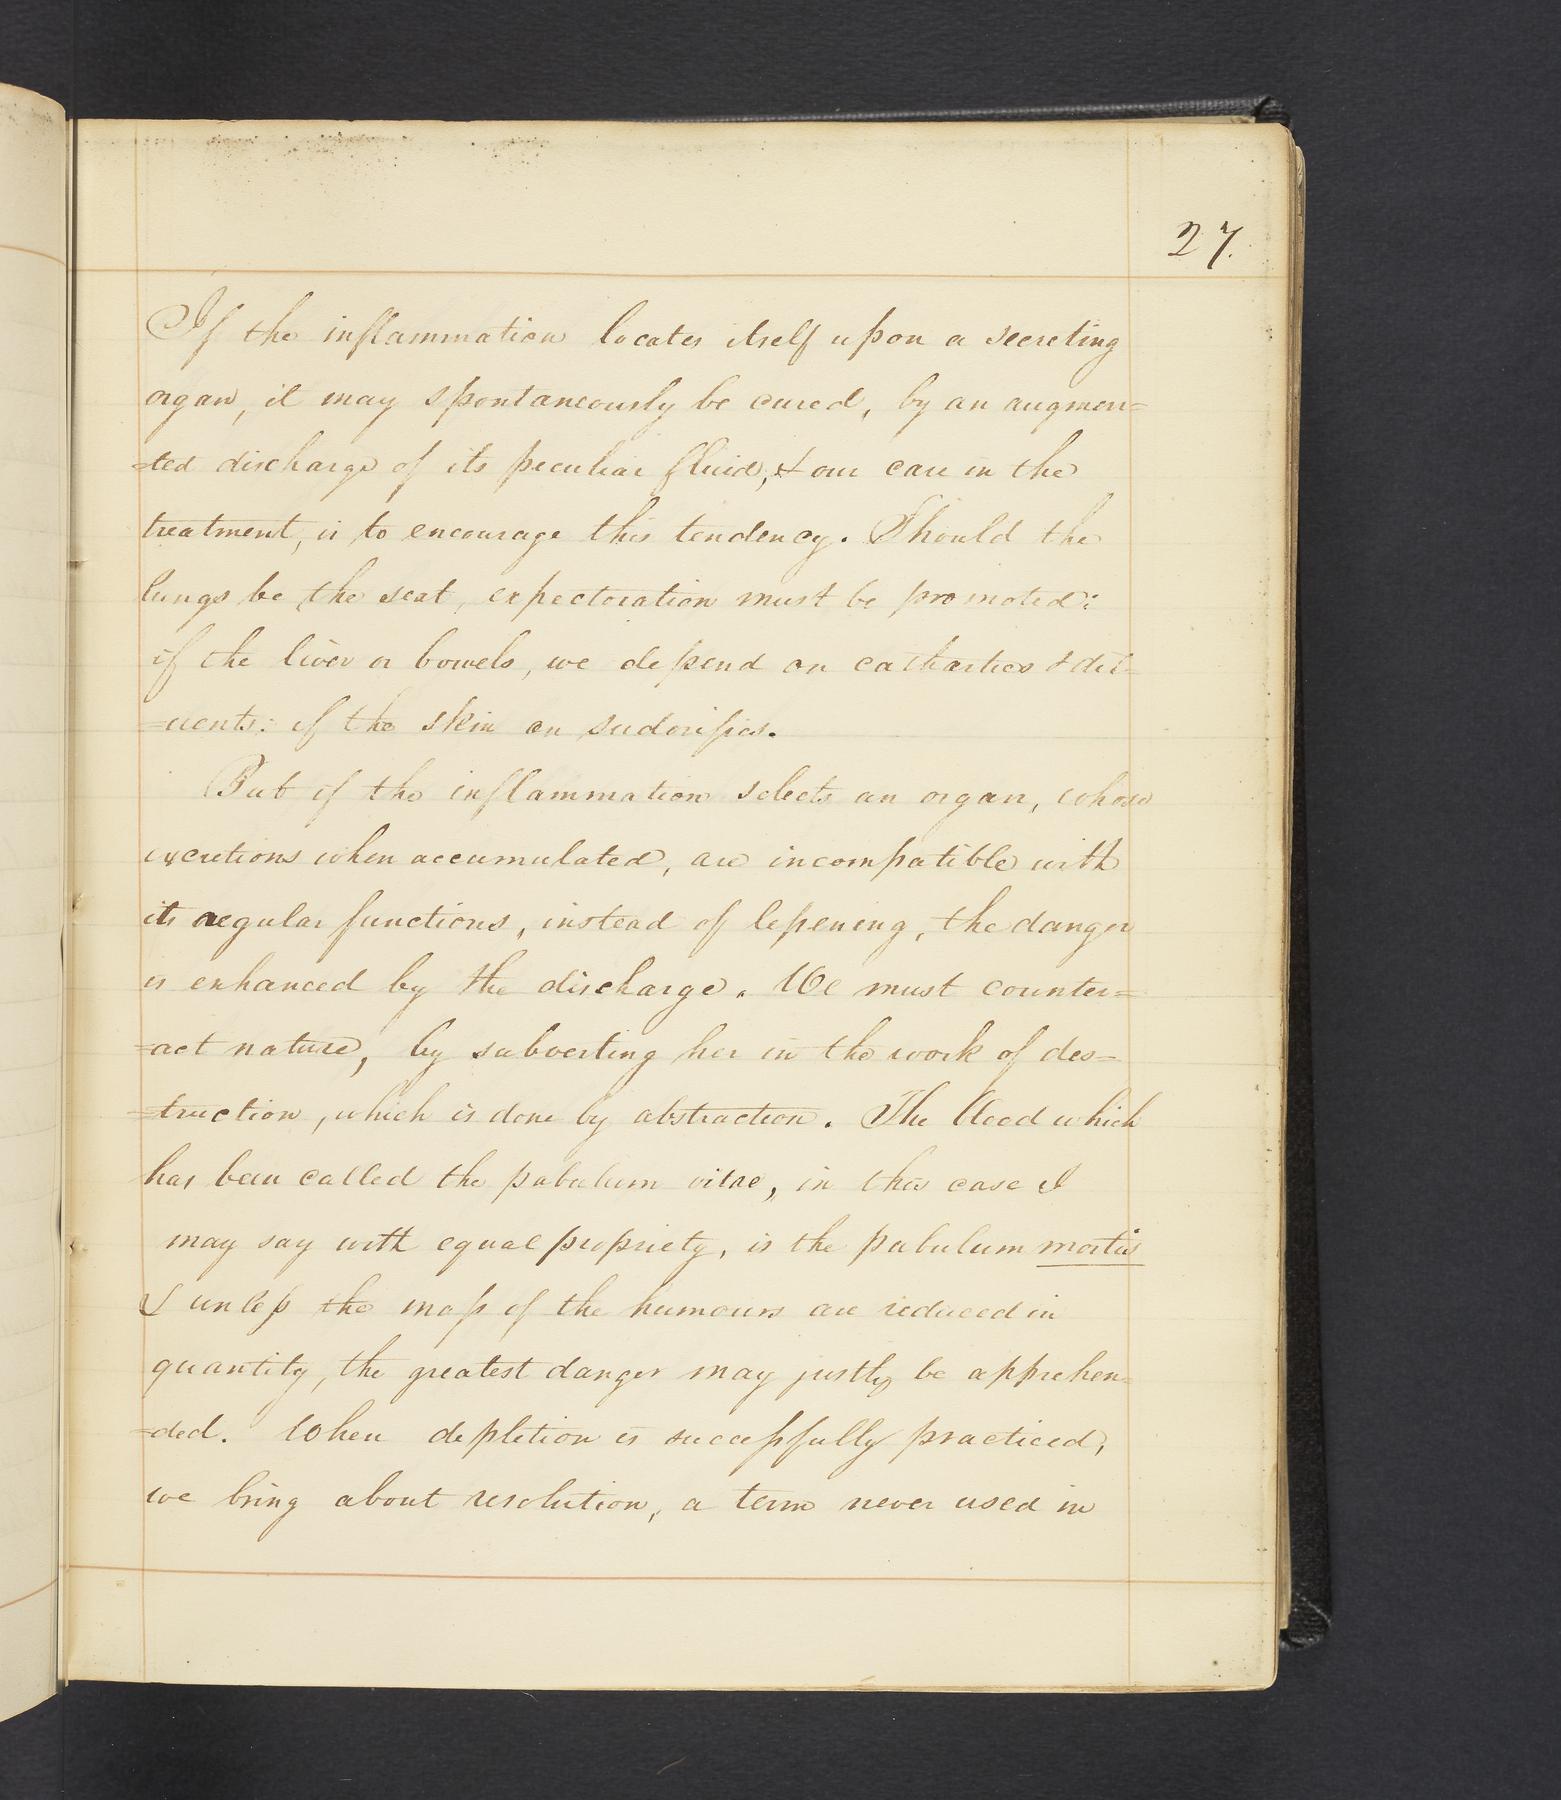 27.
If the inflammation locates itself upon a secreting
organ, it may spontaneously be cured, by an augmen=
=ted discharge of its peculiar fluid, & our care in the
treatment, is to encourage this tendency. Should the
lungs be the seat, expectoration must be promoted:
if the liver or bowels, we depend on cathartics & dil=
=uents: if the skin on sudorifics.
But if the inflammation selects an organ, whose
excretions when accumulated, are incompatible with
its regular functions, instead of lessening, the danger
is enhanced by the discharge. We must counter=
=act nature, by subverting her in the work of des=
=truction, which is done by abstraction. The blood which
has been called the pabulum vitae, in this case I
may say with equal propriety, is the pabulum mortis
& unless the mass of the humours are reduced in
quantity, the greatest danger may justly be apprehen=
=ded. When depletion is successfully practiced,
we bring about resolution, a term never used in